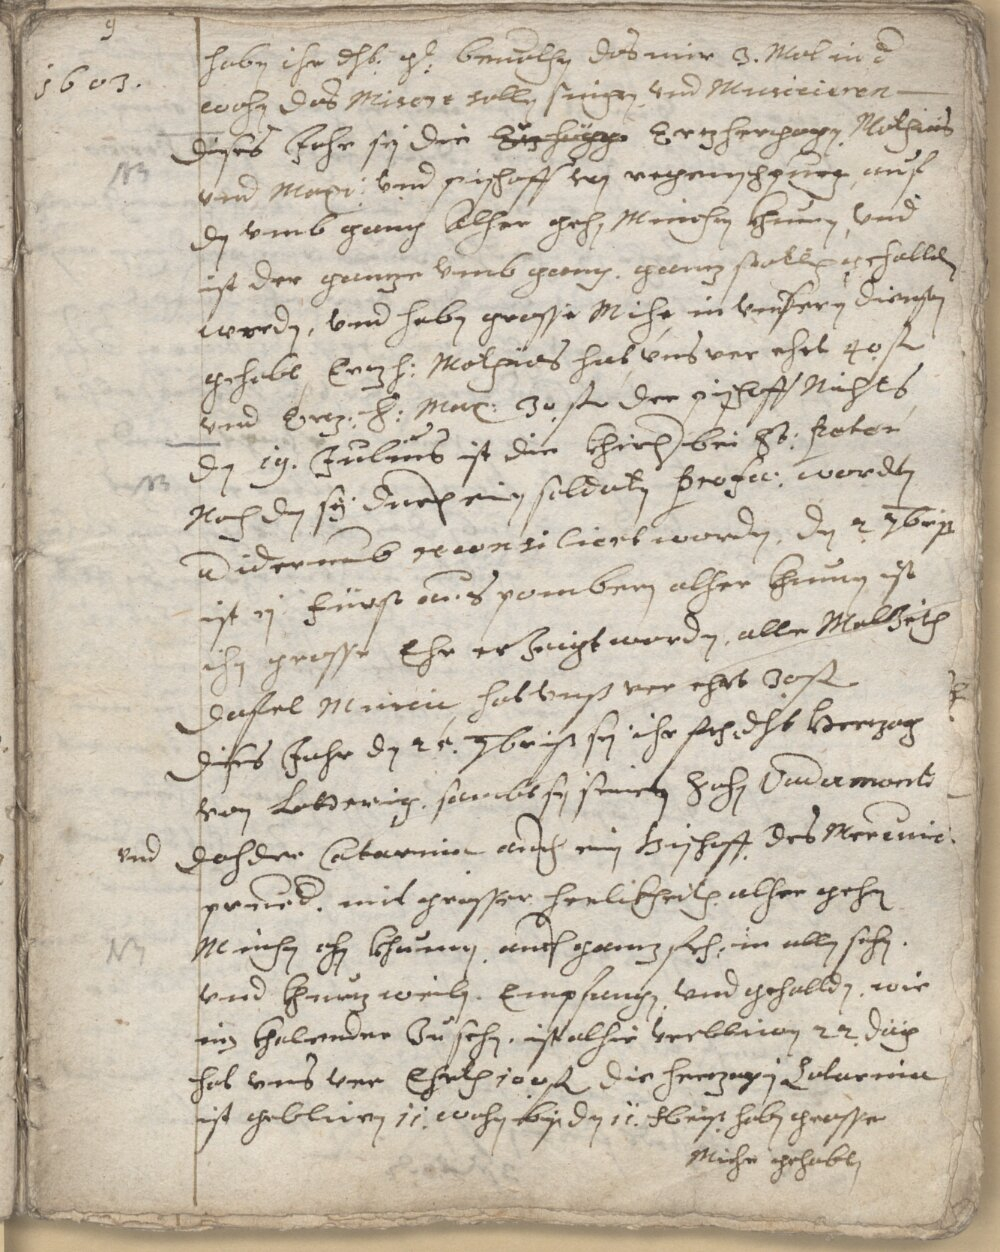 9
1603.
haben ihr dht: gl: bevolhen das mir 3. Mol in d
wohen das Misere sollen singen und Musicieren
dises Johr sein die Erzherzogen Mathias
NB
und Maxi: und pischoff von regenspurg, auf
den umb gang Alher gehn Minchen khumen, und
ist der gantze umb gang. gantz gehallden
worden, und haben grosse Mihe, in unsern diensten
gehabt Ertzh: Mathias hat uns ver ehrt 40 fl
und Ertz: h: Max: 30 fl der pischoff Nichts
den 19. Julius ist die khirch bei St: Peter
NB
Noch dem sy durch ein soldaten profa: worden
widerumb reconsiliert worden. den 2 7bris
ist ein Fürst aus pombern alher khumen ist
ihm grosse Ehr erzaigt worden. alle Malzeit
dafel Music, hat uns ver ehrt 30 fl
dises Johr den 26. 7bris sein ihr fr: dht Hertzog
von Lottering. sambt seinem Sohn Vademont
und dochder Catarina auch ein Bischoff des
mit grosser herlikheit alher gehn
NB
Minchen khumen, auch gantz in allen
und khurtz weil. Empfangen und gehallden, wie
im kalender zu sehen. ist alhie verbliven 22 däg
hat uns ver Ehrth 100 fl die hertzogin Catarina
ist gebliven 11. wohen bis den 11. xbris. haben grosse
Miehe gehabt